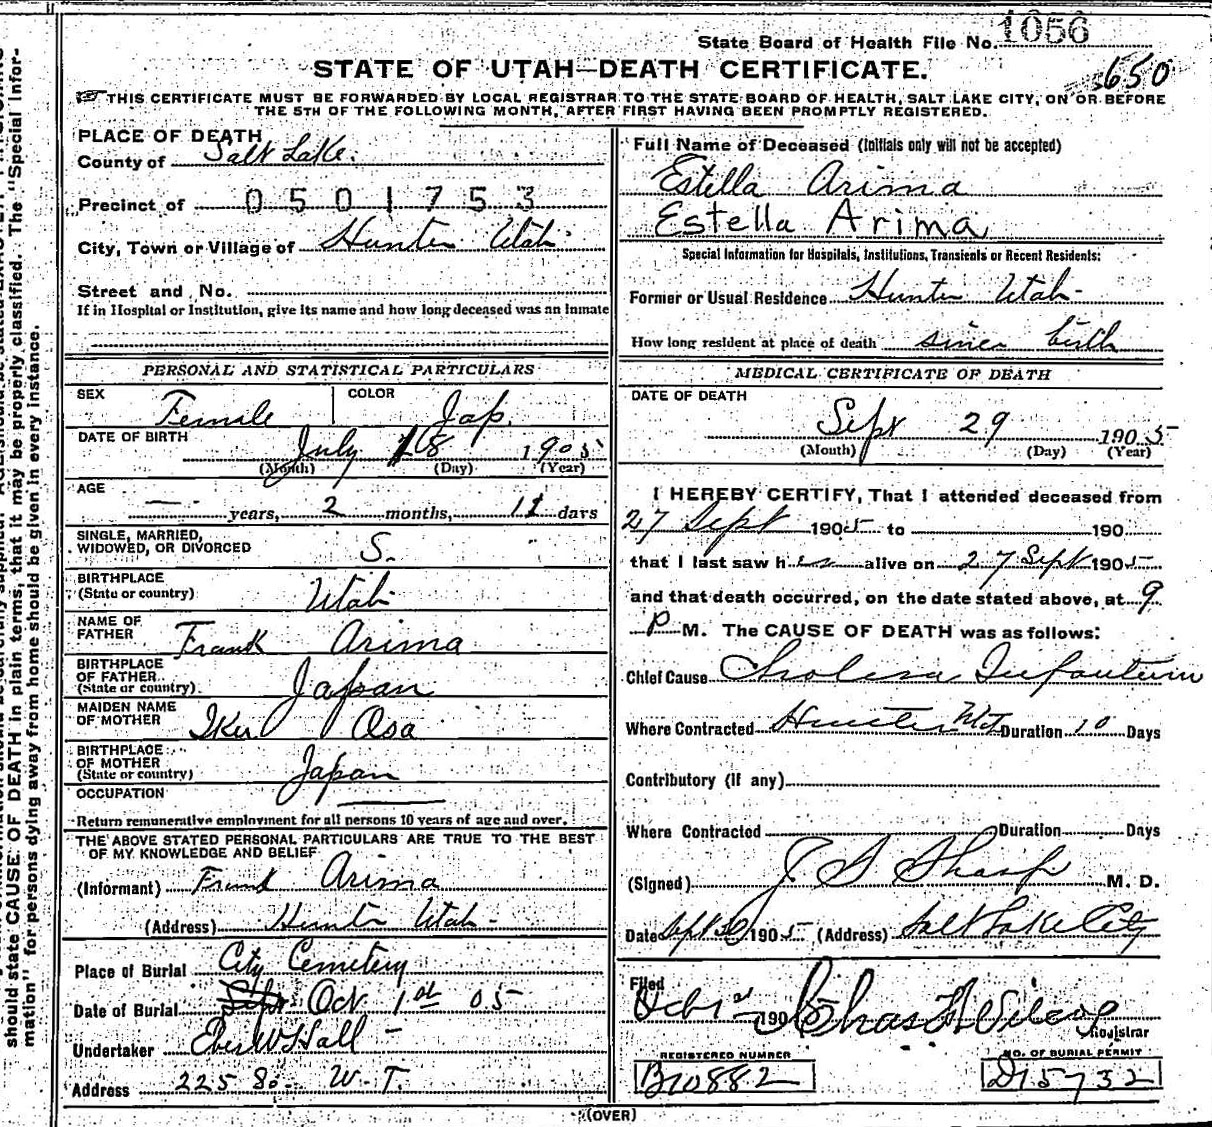 State Board of Health File No. 1056
650
STATE OF UTAH—DEATH CERTIFICATE.
THIS CERTIFICATE MUST BE FORWARDED BY LOCAL REGISTRAR TO THE STATE BOARD OF HEALTH, SALT LAKE CITY, ON OR BEFORE
THE 5TH OF THE FOLLOWING MONTH, AFTER FIRST HAVING BEEN PROMPTLY REGISTERED.
PLACE OF DEATH
County of Salt Lake.
Precinct of 0501753
City, Town or Village of Hunter Utah
Street and No.
If in Hospital or Institution, give its name and how long deceased was an inmate
PERSONAL AND STATISTICAL PARTICULARS
SEX Female COLOR Jap.
DATE OF BIRTH July 18 1905
(Month) (Day) (Year)
AGE
— years, 2 months, 11 days
SINGLE, MARRIED,
WIDOWED, OR DIVORCED S.
BIRTHPLACE
(State or country) Utah
NAME OF
FATHER Frank Arima
BIRTHPLACE
OF FATHER
(State or country) Japan
MAIDEN NAME
OF MOTHER Osa
BIRTHPLACE
OF MOTHER
(State or country) Japan
OCCUPATION
Return remunerative employment for all persons 10 years of age and over.
THE ABOVE STATED PERSONAL PARTICULARS ARE TRUE TO THE BEST
OF MY KNOWLEDGE AND BELIEF
(Informant) Frank Arima
(Address) Hunter Utah
Place of Burial City Cemetery
Date of Burial Sept Oct. 1st 05
Undertaker Eber W Hall
Address 225 So. W. T.
Full Name of Deceased (Initials only will not be accepted)
Estella Arima
Estella Arima
Special Information for Hospitals, Institutions, Transients or Recent Residents:
Former or Usual Residence Hunter Utah
How long resident at place of death since birth
MEDICAL CERTIFICATE OF DEATH
DATE OF DEATH
Sept 29 1905
(Month) (Day) (Year)
I HEREBY CERTIFY, That I attended deceased from
27 Sept 1905 to 190
that I last saw her alive on 27 Sept 1905
and that death occurred, on the date stated above, at 9
P M. The CAUSE OF DEATH was as follows:
Chief Cause Cholera Infantum
Where Contracted Hunter Duration 10 Days
Contributory (if any)
Where Contracted Duration Days
(Signed) J S Sharp M. D.
Date Sept 30 1905 (Address) Salt Lake City
Filed
Oct 190 Chas F Wilcox
Registrar
REGISTERED NUMBER NO. OF BURIAL PERMIT
B10882 D15732
(OVER)
should state CAUSE OF DEATH in plain terms, that it may be properly classified. The "Special Infor-
mation" for persons dying away from home should be given in every instance.